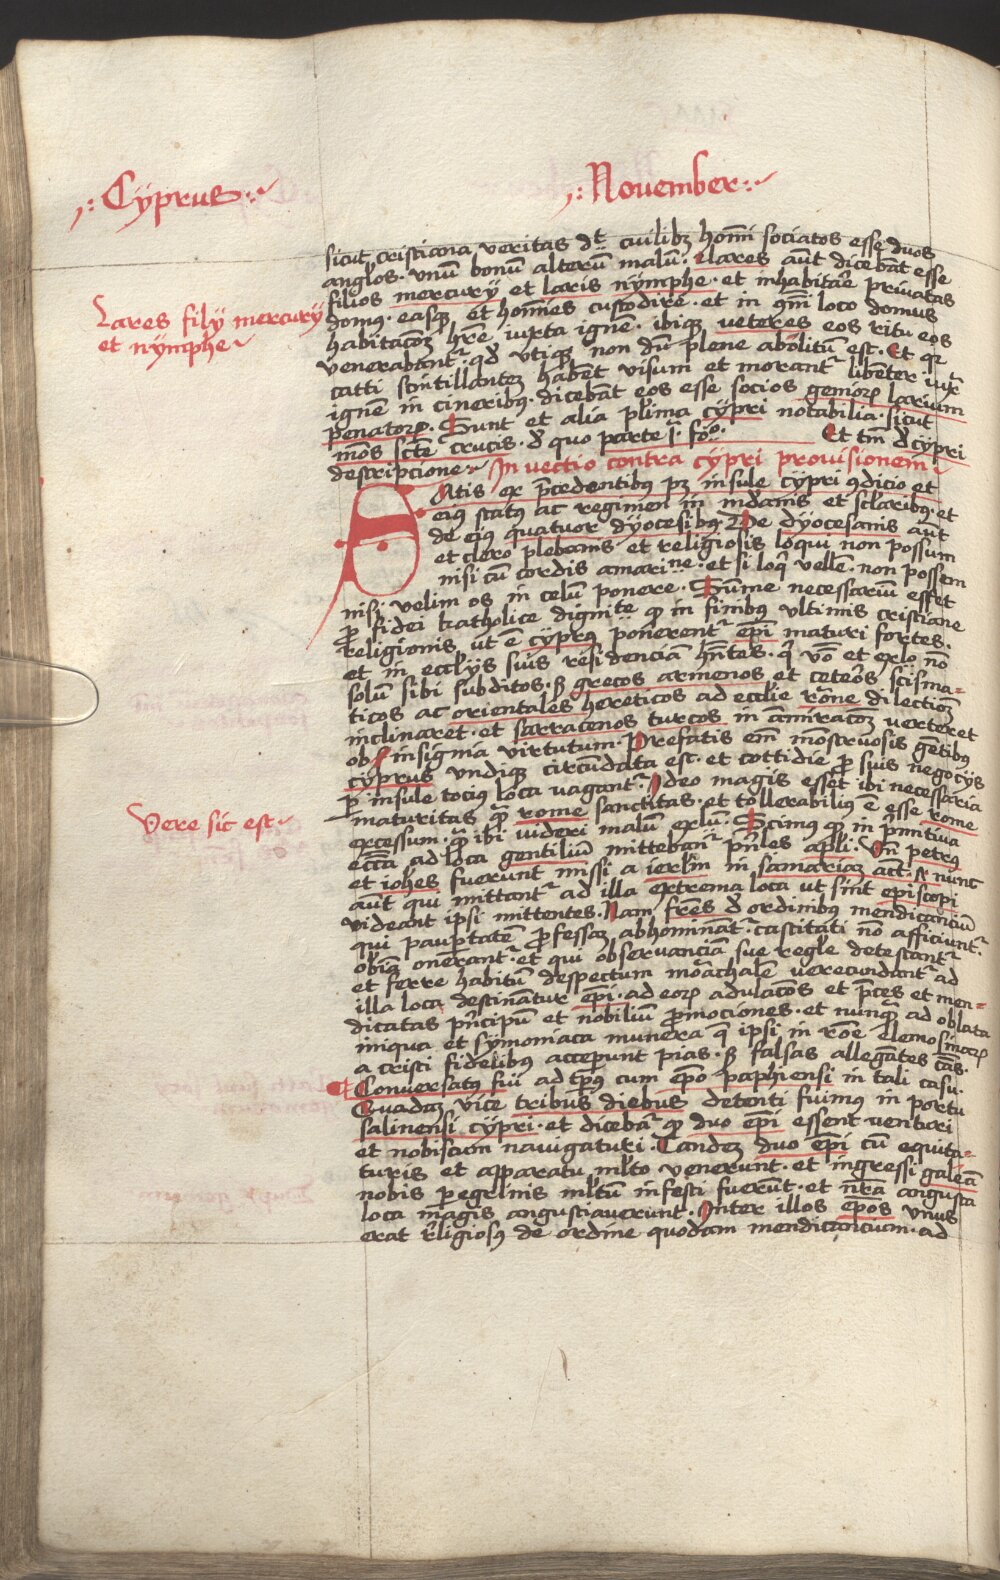 Cyprus
November
sicut cristiana veritas dt cuilibz homi sociatos esse duos
anglos. unu bonu alteru malu. Lares aut dicebat esse
filios mercury et laris nymphe. et inhabitare privatas
domus. easque et homines custodire. et in omi loco domus
Lares fily mercury
et nymphe
habitacoem hre iuxta igne. ibique veteres eos ritu eos
venerabant. qd utique non du plene abolitu est. Et qr
catti scintillantez habet visum et morant libenter iuxta
igne in cineribus. dicebat eos esse socios gemorum larium
penatorum. Sunt et alia plima cypri notabilia. sicut
mons scte crucis. de quo parte j. fo. Et tm de cypri
descripcione. In vectio contra cypri provisionem
Satis ex precedentibus pz insule cypri condicio et
eius status ac regimen in mdanis et sclaribus. et
de eius quatuor dyocesibus. De dyocesanis aut
et clero plebanis et religiosis loqui non possum
nisi cu cordis amarine. et si loqi velle. non possem
nisi velim os in celu ponere. Sume necessariu esset
pro fidei katholice dignite quod in finibus ultimis cristiane
religionis ut e cyprus ponerent epi maturi fortes.
et in ecclys suis residencia hntes. qi vo et exlo no
solu sibi subditos. sed grecos armenos et ceteros scisma=
ticos ac orientales hereticos ad ecclie rone dilectioez
inclinaret. et sarracenos turcos in amiracoez verteret
ob insignia virtutum. Prefatis em monstruosis gentibus
cyprus undique circumdata est. et cottidie pro suis negocys
per insule tocius loca vagant. Ideo magis esset ibi necessaria
maturitas qua rome sanctitas. et tollerabilius e esse rome
Vere sic est
excessum. qua ibi videri malu exlu. Scimus quod in primitiva
eccia ad loca gentiliu mittebant pnles apli. Un petrus
et iohes fuerunt missi a ierlm in samariaz act. Sed nunc
aut qui mittant ad illa extrema loca ut sint episcopi
videant ipsi mittentes. Nam fres de ordinibus mendicanciu
qui paupertate professaz abhominant. castitati no afficiunt.
obia onerant. et qui observancia sue regle detestant
et ferre habitu despectum moachale verecundant ad
illa loca destinantur epi. ad eorum adulacoes et pces et men=
dicatas principu et nobiliu promociones. et nunque ad oblata
iniqua et symoniaca munera que ipsi in roe elemosinarum
a cristi fidelibus acceperunt pias. sed falsas allegantes cas.
Conversatus fui ad tpus cum epo paphiensi in tali casu.
Quadaz vice tribus diebus detenti fuimus in portu
salinensi cypri. et diceba quod duo epi essent venturi
et nobiscum navigaturi. Tandez duo epi cu equita=
turis et apparatu mlto venerunt. et ingressi galea
nobis peregrinis mltu infesti fuerut. et nra angusta
loca magis angustiaverunt. Inter illos epos unus
erat religiosus de ordine quodam mendicancium. ad